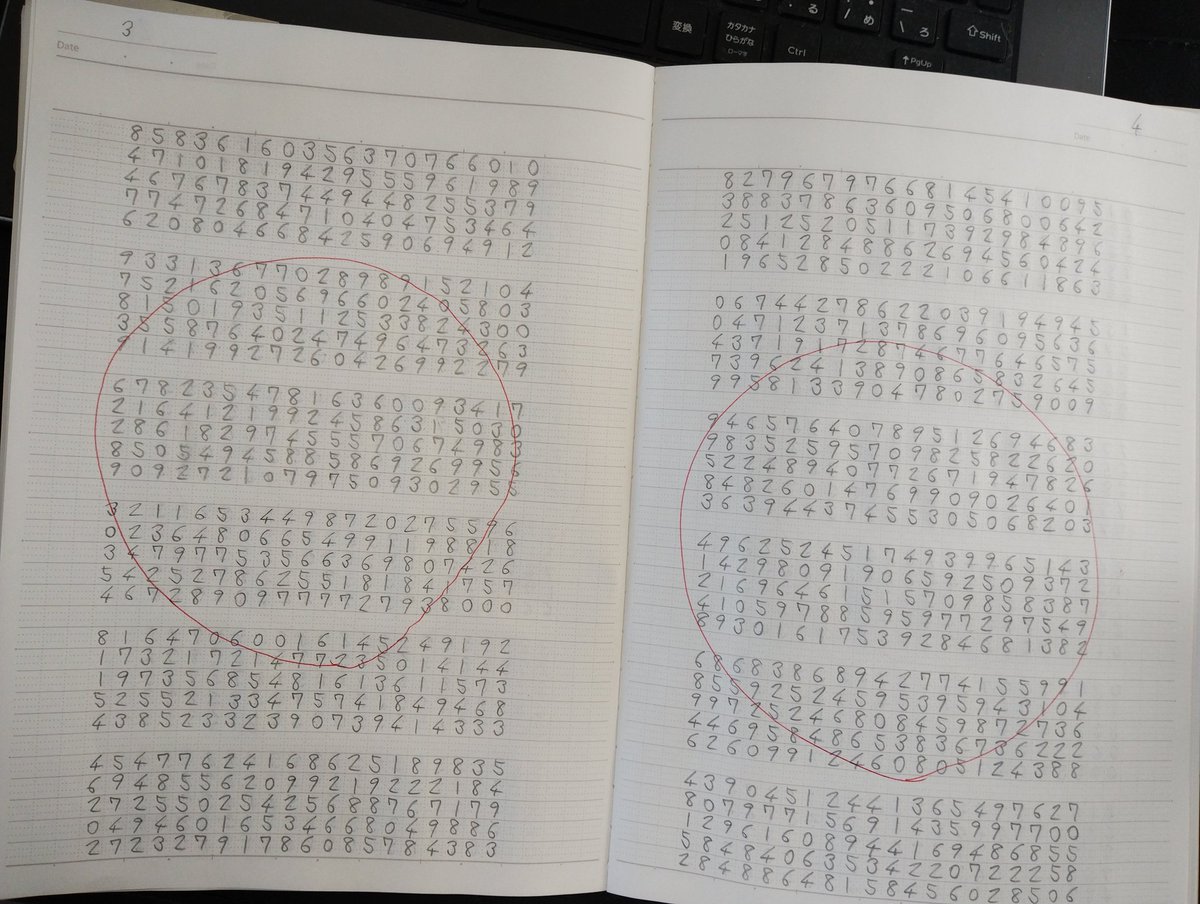 変換
カタカナ
ひらがな
ローマ字
Ctrl
る
め
ろ
⇧Shift
↑PgUp
3
Date
8 5 8 3 6 1 6 0 3 5 6 3 7 0 7 6 6 0 1 0
4 7 1 0 1 8 1 9 4 2 9 5 5 5 9 6 1 9 8 9
4 6 7 6 7 8 3 7 4 4 9 4 4 8 2 5 5 3 7 9
7 7 4 7 2 6 8 4 7 1 0 4 0 4 7 5 3 4 6 4
6 2 0 8 0 4 6 6 8 4 2 5 9 0 6 9 4 9 1 2
9 3 3 1 3 6 7 7 0 2 8 9 8 9 1 5 2 1 0 4
7 5 2 1 6 2 0 5 6 9 6 6 0 2 4 0 5 8 0 3
8 1 5 0 1 9 3 5 1 1 2 5 3 3 8 2 4 3 0 0
3 5 5 8 7 6 4 0 2 4 7 4 9 6 4 7 3 2 6 3
9 1 4 1 9 9 2 7 2 6 0 4 2 6 9 9 2 2 7 9
6 7 8 2 3 5 4 7 8 1 6 3 6 0 0 9 3 4 1 7
2 1 6 4 1 2 1 9 9 2 4 5 8 6 3 1 5 0 3 0
2 8 6 1 8 2 9 7 4 5 5 5 7 0 6 7 4 9 8 3
8 5 0 5 4 9 4 5 8 8 5 8 6 9 2 6 9 9 5 6
9 0 9 2 7 2 1 0 7 9 7 5 0 9 3 0 2 9 5 5
3 2 1 1 6 5 3 4 4 9 8 7 2 0 2 7 5 5 9 6
0 2 3 6 4 8 0 6 6 5 4 9 9 1 1 9 8 8 1 8
3 4 7 9 7 7 5 3 5 6 6 3 6 9 8 0 7 4 2 6
5 4 2 5 2 7 8 6 2 5 5 1 8 1 8 4 1 7 5 7
4 6 7 2 8 9 0 9 7 7 7 7 2 7 9 3 8 0 0 0
8 1 6 4 7 0 6 0 0 1 6 1 4 5 2 4 9 1 9 2
1 7 3 2 1 7 2 1 4 7 7 2 3 5 0 1 4 1 4 4
1 9 7 3 5 6 8 5 4 8 1 6 1 3 6 1 1 5 7 3
5 2 5 5 2 1 3 3 4 7 5 7 4 1 8 4 9 4 6 8
4 3 8 5 2 3 3 2 3 9 0 7 3 9 4 1 4 3 3 3
4 5 4 7 7 6 2 4 1 6 8 6 2 5 1 8 9 8 3 5
6 9 4 8 5 5 6 2 0 9 9 2 1 9 2 2 2 1 8 4
2 7 2 5 5 0 2 5 4 2 5 6 8 8 7 6 7 1 7 9
0 4 9 4 6 0 1 6 5 3 4 6 6 8 0 4 9 8 8 6
2 7 2 3 2 7 9 1 7 8 6 0 8 5 7 8 4 3 8 3
4
Date
8 2 7 9 6 7 9 7 6 6 8 1 4 5 4 1 0 0 9 5
3 8 8 3 7 8 6 3 6 0 9 5 0 6 8 0 0 6 4 2
2 5 1 2 5 2 0 5 1 1 7 3 9 2 9 8 4 8 9 6
0 8 4 1 2 8 4 8 8 6 2 6 9 4 5 6 0 4 2 4
1 9 6 5 2 8 5 0 2 2 2 1 0 6 6 1 1 8 6 3
0 6 7 4 4 2 7 8 6 2 2 0 3 9 1 9 4 9 4 5
0 4 7 1 2 3 7 1 3 7 8 6 9 6 0 9 5 6 3 6
4 3 7 1 9 1 7 2 8 7 4 6 7 7 6 4 6 5 7 5
7 3 9 6 2 4 1 3 8 9 0 8 6 5 8 3 2 6 4 5
9 9 5 8 1 3 3 9 0 4 7 8 0 2 7 5 9 0 0 9
9 4 6 5 7 6 4 0 7 8 9 5 1 2 6 9 4 6 8 3
9 8 3 5 2 5 9 5 7 0 9 8 2 5 8 2 2 6 2 0
5 2 2 4 8 9 4 0 7 7 2 6 7 1 9 4 7 8 2 6
8 4 8 2 6 0 1 4 7 6 9 9 0 9 0 2 6 4 0 1
3 6 3 9 4 4 3 7 4 5 5 3 0 5 0 6 8 2 0 3
4 9 6 2 5 2 4 5 1 7 4 9 3 9 9 6 5 1 4 3
1 4 2 9 8 0 9 1 9 0 6 5 9 2 5 0 9 3 7 2
2 1 6 9 6 4 6 1 5 1 5 7 0 9 8 5 8 3 8 7
4 1 0 5 9 7 8 8 5 9 5 9 7 7 2 9 7 5 4 9
8 9 3 0 1 6 1 7 5 3 9 2 8 4 6 8 1 3 8 2
6 8 6 8 3 8 6 8 9 4 2 7 7 4 1 5 5 9 9 1
8 5 5 9 2 5 2 4 5 9 5 3 9 5 9 4 3 1 0 4
9 9 7 2 5 2 4 6 8 0 8 4 5 9 8 7 2 7 3 6
4 4 6 9 5 8 4 8 6 5 3 8 3 6 7 3 6 2 2 2
6 2 6 0 9 9 1 2 4 6 0 8 0 5 1 2 4 3 8 8
4 3 9 0 4 5 1 2 4 4 1 3 6 5 4 9 7 6 2 7
8 0 7 9 7 7 1 5 6 9 1 4 3 5 9 9 7 7 0 0
1 2 9 6 1 6 0 8 9 4 4 1 6 9 4 8 6 8 5 5
5 8 4 8 4 0 6 3 5 3 4 2 2 0 7 2 2 2 5 8
2 8 4 8 8 6 4 8 1 5 8 4 5 6 0 2 8 5 0 6